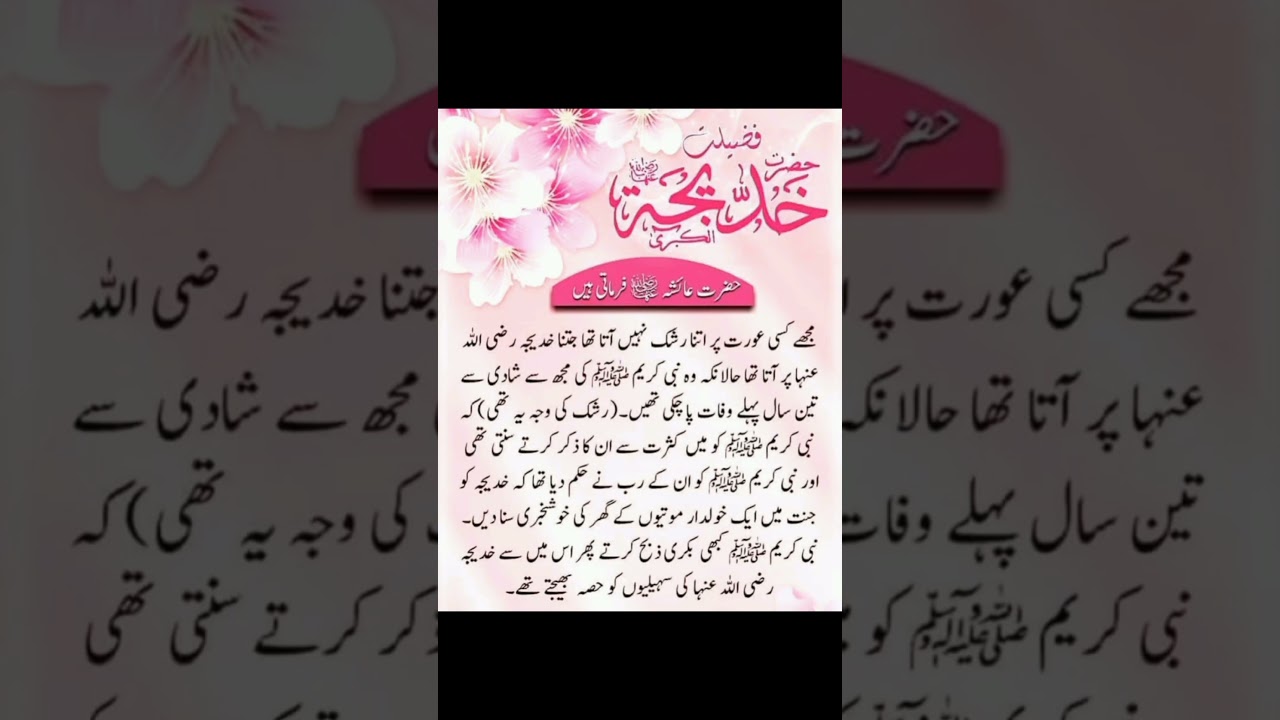 فضیلت
حضرت خدیجۃ رضی اللہ عنہا
الکبریٰ
حضرت عائشہ رضی اللہ عنہا فرماتی ہیں
مجھے کسی عورت پر اتنا رشک نہیں آتا تھا جتنا خدیجہ رضی اللہ
عنہا پر آتا تھا حالانکہ وہ نبی کریم ﷺ کی مجھ سے شادی سے
تین سال پہلے وفات پا چکی تھیں۔(رشک کی وجہ یہ تھی) کہ
نبی کریم ﷺ کو میں کثرت سے ان کا ذکر کرتے سنتی تھی
اور نبی کریم ﷺ کو ان کے رب نے حکم دیا تھا کہ خدیجہ کو
جنت میں ایک خولدار موتیوں کے گھر کی خوشخبری سنا دیں۔
نبی کریم ﷺ کبھی بکری ذبح کرتے پھر اس میں سے خدیجہ
رضی اللہ عنہا کی سہیلیوں کو حصہ بھیجتے تھے۔